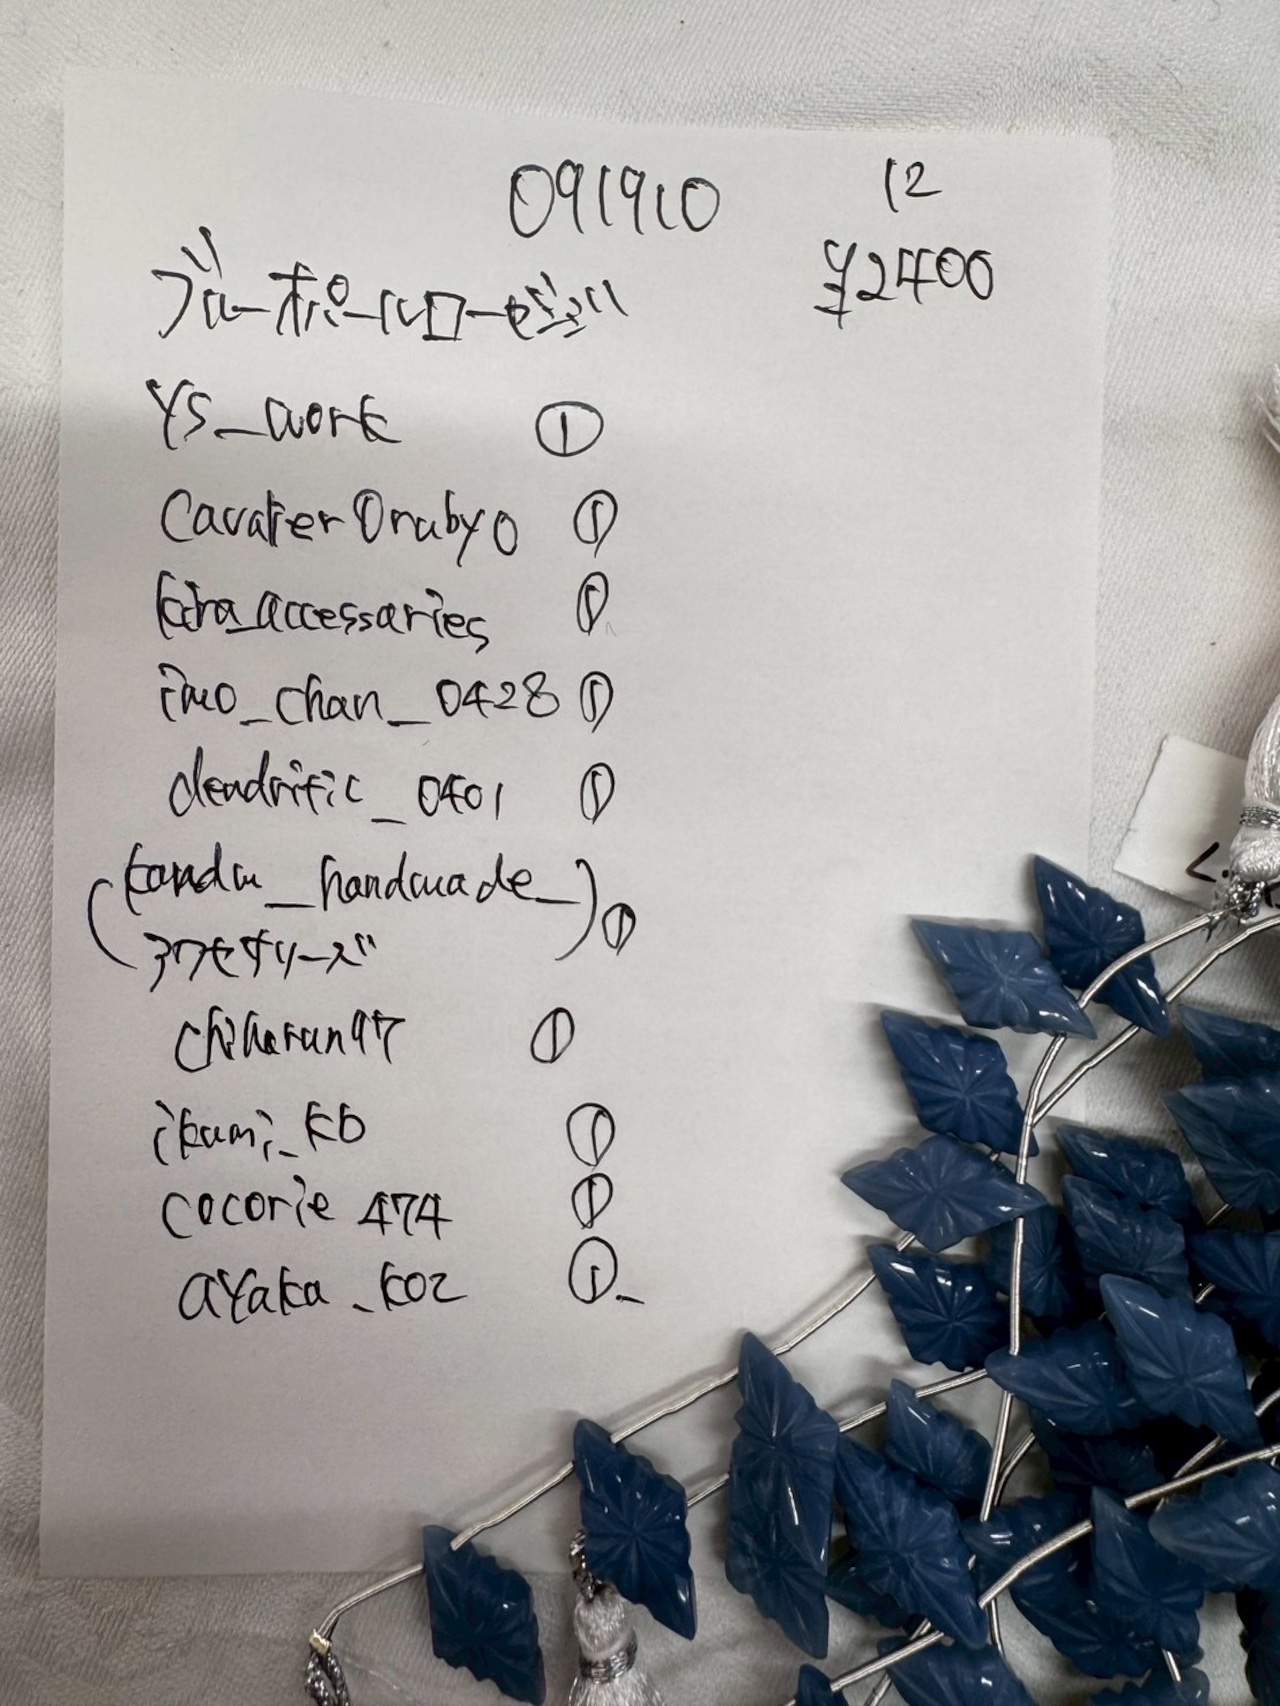 091910 12
ブルーオパールローゼジュリ ¥2400
YS_work ①
Cavalier0ruby0 ①
kira_accessaries ①
imo_chan_0428 ①
dendritic_0401 ①
(kandm_handmade_
アクセサリーズ) ①
chiharun97 ①
ikumi_kb ①
cocorie 474 ①
aYaka_koz ①